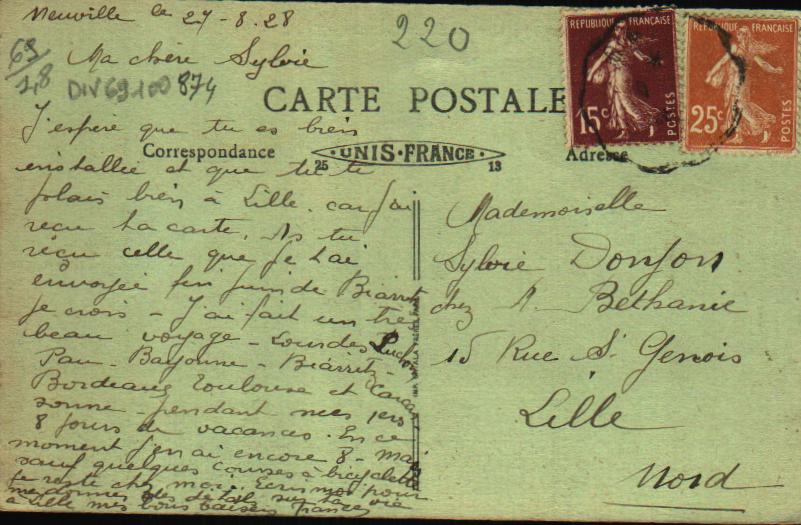 Neuville le 27-8.28
220
Ma chère Sylvie
69/28
DIV69100 874
REPUBLIQUE FRANÇAISE
15c
POSTES
REPUBLIQUE FRANÇAISE
25c
POSTES
CARTE POSTALE
Correspondance
25 ·UNIS·FRANCE· 13
Adresse
J'espère que tu es bien
installée et que tu te
plais bien à Lille. car j'ai
reçu ta carte. As tu
reçu celle que je t'ai
envoyée fin juin de Biarritz
je crois - J'ai fait un très
beau voyage - Lourdes Luchon
Pau - Bayonne - Biarritz -
Bordeaux Toulouse et Carcas
sonne - pendant mes 1ers
8 jours de vacances. En ce
moment j'en ai encore 8 - mais
sauf quelques courses à bicyclette
je reste chez moi. Ecris moi pour
me donner des détails sur ta vie
à Lille mes bons baisers
Mademoiselle
Sylvie Donjon
chez Béthanie
15 Rue St Genois
Lille
Nord